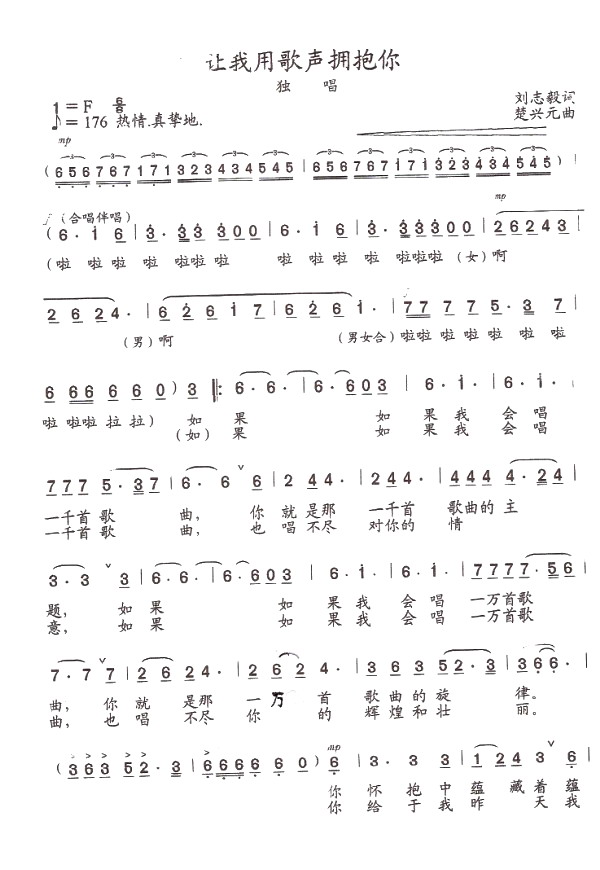 让我用歌声拥抱你
独 唱
1=F 6/8
♪=176 热情.真挚地.
刘志毅词
楚兴元曲
mp
(656 767 171 323 434 545 | 656 767 171 323 434 545) |
mp
f (合唱伴唱)
(6· i 6 | 3· 33300 | 6· i 6 | 3· 33300 | 26243
(啦 啦 啦 啦 啦啦 啦 啦 啦 啦 啦 啦啦啦 (女)啊
2 6 24· | 6 2 6 1 7 | 6 2 6 i· | 77 77 5· 3 7
(男)啊 (男女合)啦啦 啦啦 啦 啦 啦
6 66 6 6 0) 3 |: 6· 6· | 6· 603 | 6· i· | 6· i·
啦 啦啦 拉 拉) 如 果 如 果 我 会 唱
(如) 果 如 果 我 会 唱
777 5·37 | 6· 6 ∨ 6 | 2 44· | 2 44· | 444 4·24 |
一千首 歌 曲， 你 就 是那 一千首 歌曲的 主
一千首 歌 曲， 也 唱 不尽 对你的 情
3· 3 ∨ 3 | 6· 6· | 6· 603 | 6· i· | 6· i· | 7777·56 |
题， 如 果 如 果 我 会 唱 一万首歌
意， 如 果 如 果 我 会 唱 一万首歌
7· 7 ∨ 7 | 2 6 24· | 2 6 24· | 3 6 3 52·3· | 366· |
曲， 你 就 是那 一 万 首 歌 曲 的 旋 律。
曲， 也 唱 不尽 你 的 辉 煌 和 壮 丽。
mp
(363 52·3 | 6666 6 0) 6 | 3· 3 3 | 1 24 3 ∨ 6
你 怀 抱 中 蕴 藏 着 蕴
你 给 于 我 昨 天 我